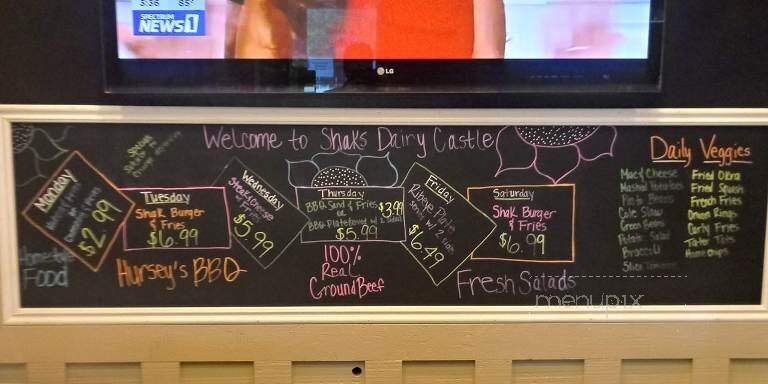 5:36 85°
SPECTRUM
NEWS1
LG
Welcome to Shaks Dairy Castle
Monday
$2.99
Tuesday
Shak Burger
& Fries
$6.99
Wednesday
$5.99
Thursday
BBQ Sand & Fries $3.99
or
BBQ Plate w/ 2 sides
$5.99
Friday
Ribeye Plate
serv w/ 2 sides
$6.49
Saturday
Shak Burger
& Fries
$6.99
Daily Veggies
Mac & Cheese
Mashed Potatoes
Pinto Beans
Cole Slaw
Green Beans
Potato Salad
Broccoli
Fried Okra
Fried Squash
French Fries
Onion Rings
Curly Fries
Tater Tots
Home Chips
Homestyle
Food
Hursey's BBQ
100%
Real
Ground Beef
Fresh Salads
menupix